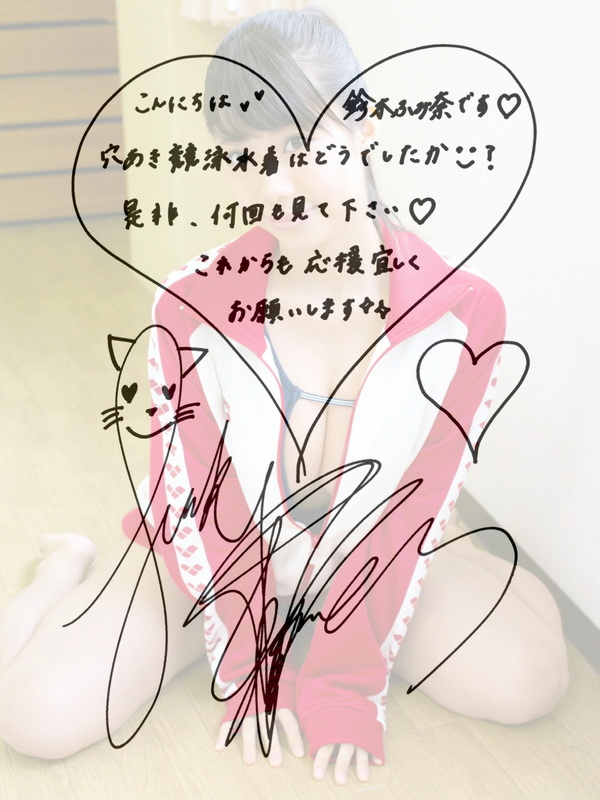 こんにちは♥♥ 鈴木ふみ奈です♡
穴あき競泳水着はどうでしたか!?
是非、何回も見て下さい♡
これからも応援宜しく
お願いします☆☆